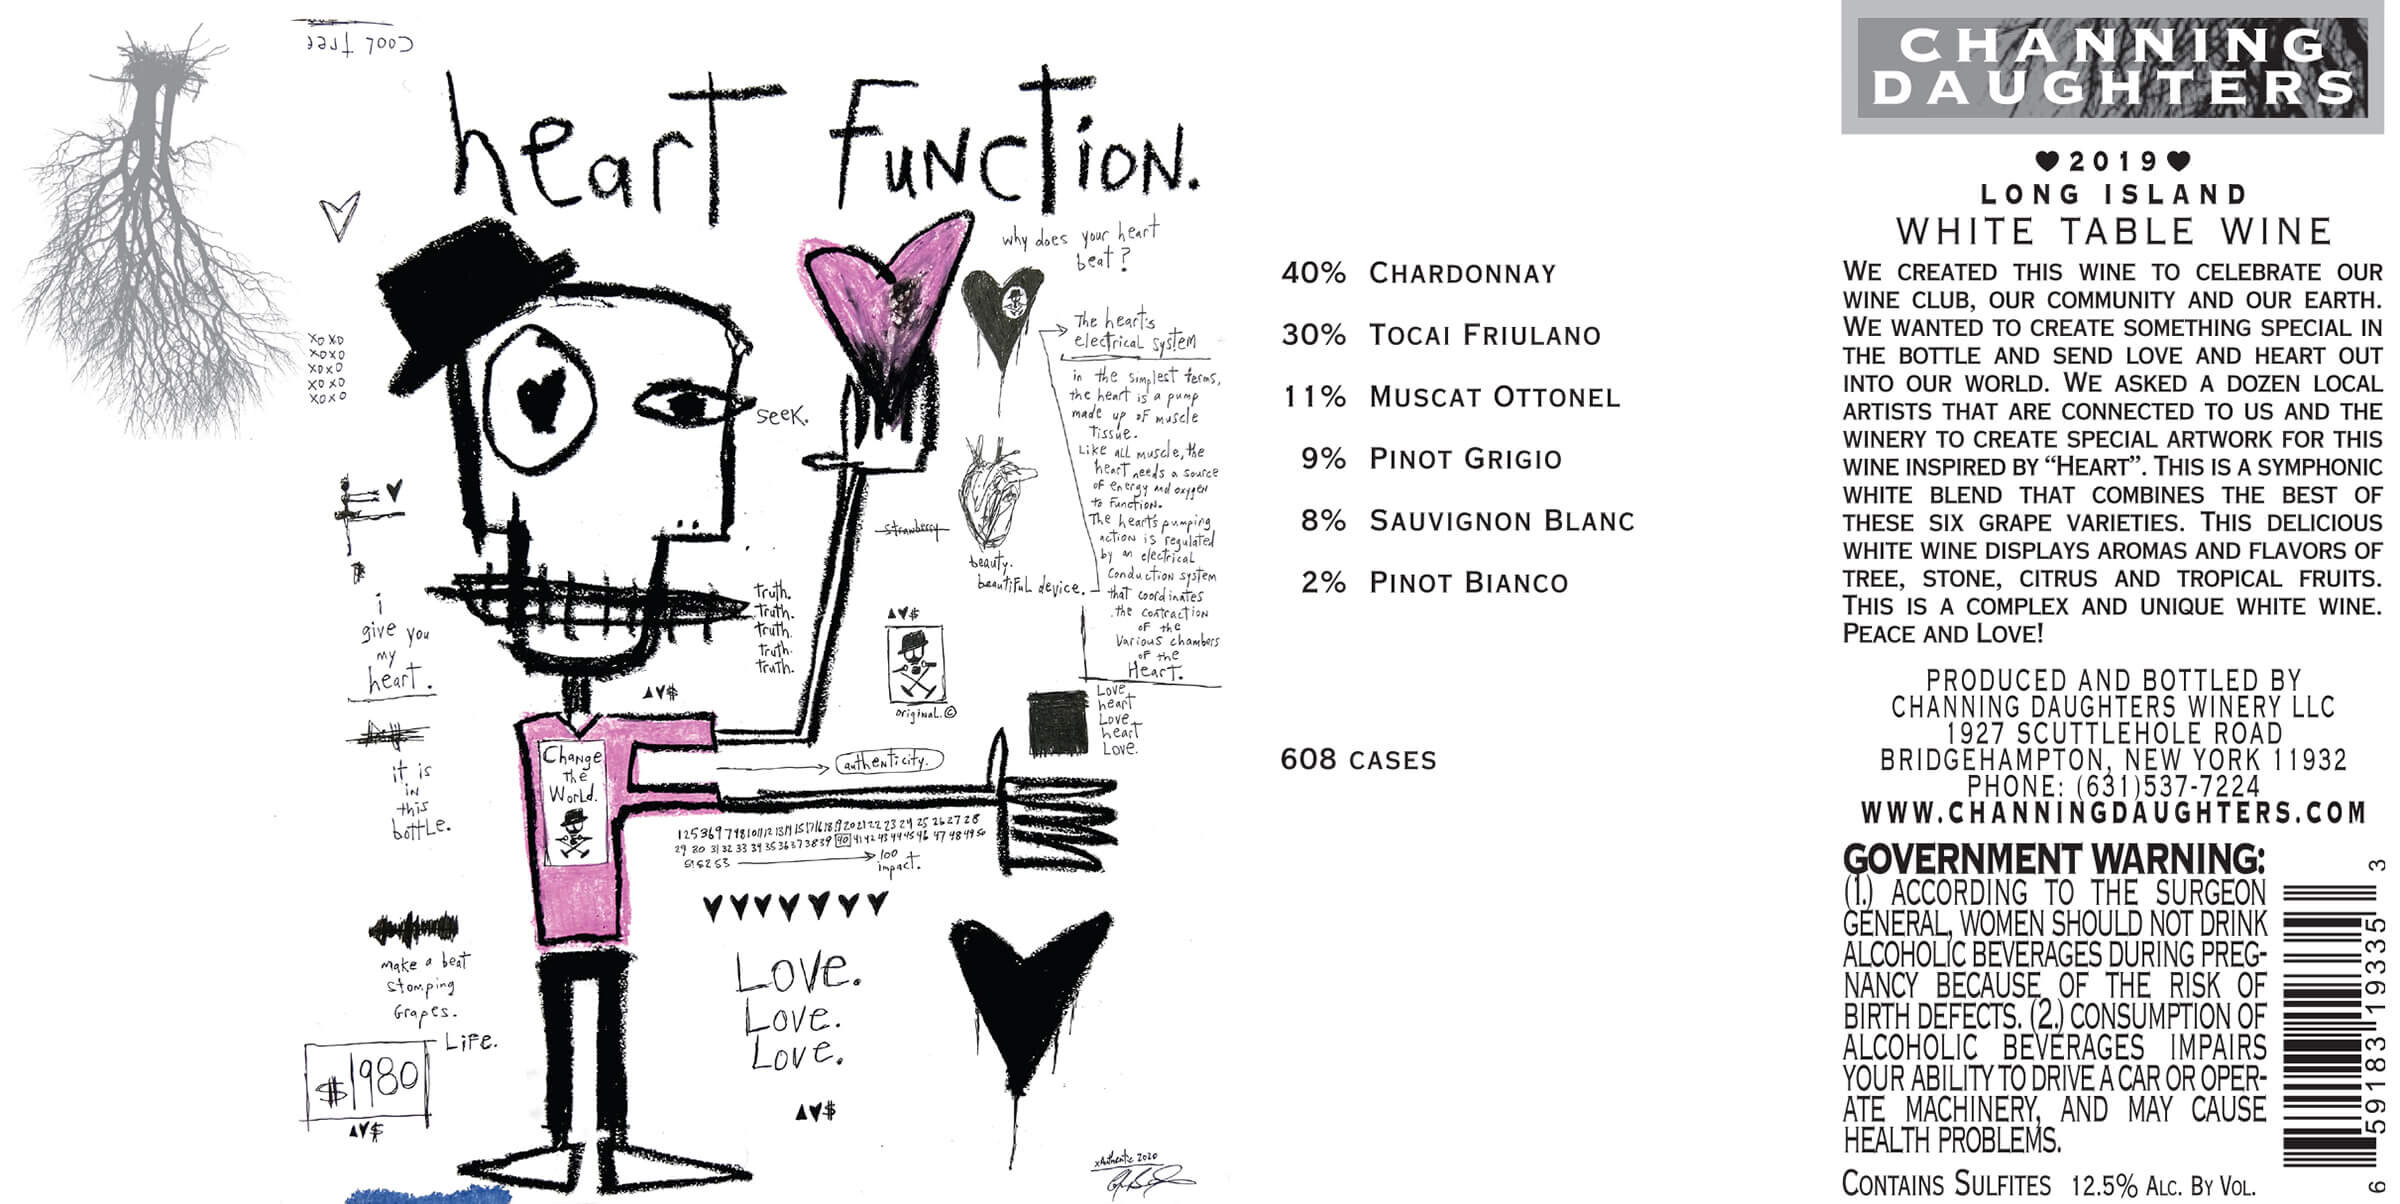 Cool Tree
heart Function.
why does your heart
beat?
The heart's
electrical system
in the simplest terms,
the heart is a pump
made up of muscle
tissue.
Like all muscle, the
heart needs a source
of energy and oxygen
to function.
The heart's pumping
action is regulated
by an electrical
conduction system
that coordinates
the contraction
of the
various chambers
of the
Heart.
xoxo
xoxo
xoxo
xoxo
xoxo
seek.
strawberry
beauty.
beautiful device.
i
give you
my
heart.
it is
in
this
bottle.
truth.
truth.
truth.
truth.
truth.
original.©
Love
heart
Love
heart
Love.
Change
the
World.
authenticity.
29 30 31 32 33 34 35 36 37 38 39 40 41 42 43 44 45 46 47 48 49 50
51 52 53
100
impact.
make a beat
stomping
Grapes.
Life.
$1980
Love.
Love.
Love.
xAuthentic 2020
40% CHARDONNAY
30% TOCAI FRIULANO
11% MUSCAT OTTONEL
9% PINOT GRIGIO
8% SAUVIGNON BLANC
2% PINOT BIANCO
608 CASES
CHANNING
DAUGHTERS
♥2019♥
LONG ISLAND
WHITE TABLE WINE
WE CREATED THIS WINE TO CELEBRATE OUR
WINE CLUB, OUR COMMUNITY AND OUR EARTH.
WE WANTED TO CREATE SOMETHING SPECIAL IN
THE BOTTLE AND SEND LOVE AND HEART OUT
INTO OUR WORLD. WE ASKED A DOZEN LOCAL
ARTISTS THAT ARE CONNECTED TO US AND THE
WINERY TO CREATE SPECIAL ARTWORK FOR THIS
WINE INSPIRED BY “HEART”. THIS IS A SYMPHONIC
WHITE BLEND THAT COMBINES THE BEST OF
THESE SIX GRAPE VARIETIES. THIS DELICIOUS
WHITE WINE DISPLAYS AROMAS AND FLAVORS OF
TREE, STONE, CITRUS AND TROPICAL FRUITS.
THIS IS A COMPLEX AND UNIQUE WHITE WINE.
PEACE AND LOVE!
PRODUCED AND BOTTLED BY
CHANNING DAUGHTERS WINERY LLC
1927 SCUTTLEHOLE ROAD
BRIDGEHAMPTON, NEW YORK 11932
PHONE: (631)537-7224
WWW.CHANNINGDAUGHTERS.COM
GOVERNMENT WARNING:
(1.) ACCORDING TO THE SURGEON
GENERAL, WOMEN SHOULD NOT DRINK
ALCOHOLIC BEVERAGES DURING PREG-
NANCY BECAUSE OF THE RISK OF
BIRTH DEFECTS. (2.) CONSUMPTION OF
ALCOHOLIC BEVERAGES IMPAIRS
YOUR ABILITY TO DRIVE A CAR OR OPER-
ATE MACHINERY, AND MAY CAUSE
HEALTH PROBLEMS.
CONTAINS SULFITES 12.5% ALC. BY VOL.
6 59183 19335 3